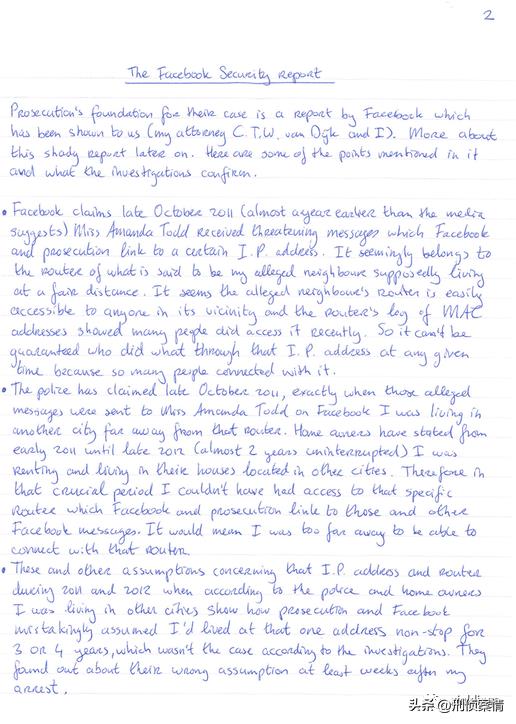 2
The Facebook Security report
Prosecution's foundation for their case is a report by Facebook which
has been shown to us (my attorney C.T.W. van Dijk and I). More about
this shady report later on. Here are some of the points mentioned in it
and what the investigations confirm.
• Facebook claims late October 2011 (almost a year earlier than the media
suggests) Miss Amanda Todd received threatening messages which Facebook
and prosecution link to a certain I.P. address. It seemingly belongs to
the router of what is said to be my alleged neighbour supposedly living
at a fair distance. It seems the alleged neighbour's router is easily
accessible to anyone in its vicinity and the router's log of MAC
addresses showed many people did access it recently. So it can't be
guaranteed who did what through that I.P. address at any given
time because so many people connected with it.
• The police has claimed late October 2011, exactly when those alleged
messages were sent to Miss Amanda Todd on Facebook I was living in
another city far away from that router. Home owners have stated from
early 2011 until late 2012 (almost 2 years uninterrupted) I was
renting and living in their houses located in other cities. Therefore in
that crucial period I couldn't have had access to that specific
router which Facebook and prosecution link to those and other
Facebook messages. It would mean I was too far away to be able to
connect with that router.
• These and other assumptions concerning that I.P. address and router
during 2011 and 2012 when according to the police and home owners
I was living in other cities show how prosecution and Facebook
mistakingly assumed I'd lived at that one address non-stop for
3 or 4 years, which wasn't the case according to the investigations. They
found out about their wrong assumption at least weeks after my
arrest.
头条@刑侦案情